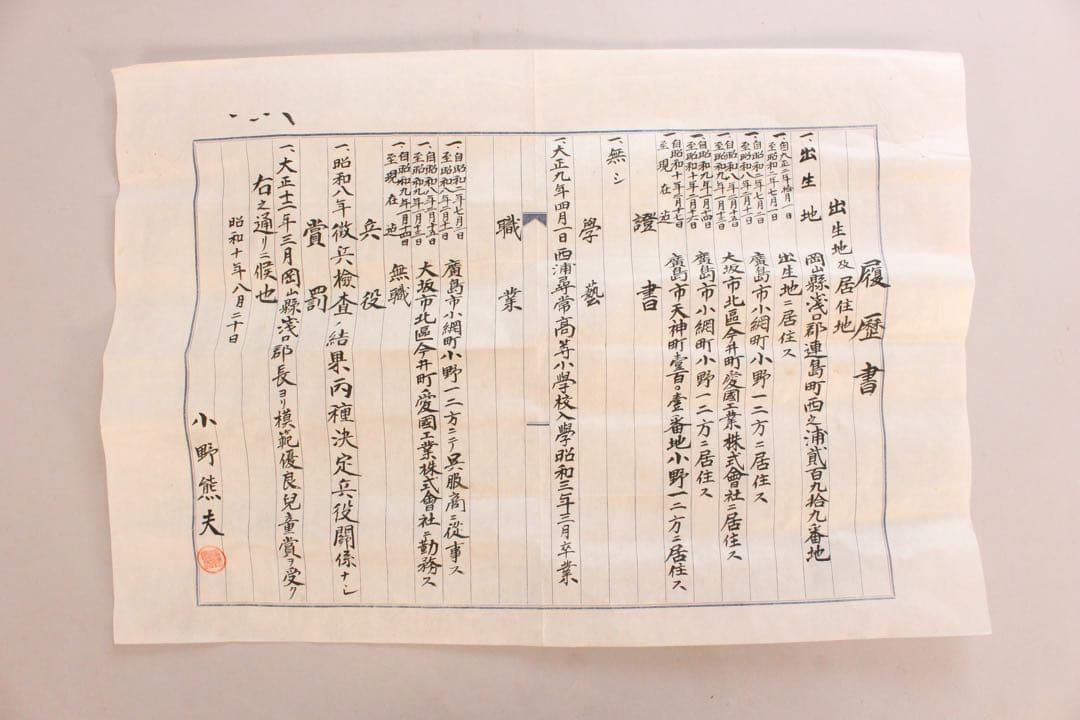 履歴書
出生地及居住地
一、出生地 岡山縣浅口郡連島町西之浦貳百九拾九番地
一、自大正二年拾月一日 至昭和二年七月一日 出生地ニ居住ス
一、自昭和二年七月二日 至昭和八年二月十一日 廣島市小網町小野一二方ニ居住ス
一、自昭和八年二月十五日 至昭和九年一月十三日 大坂市北區今井町愛國工業株式會社ニ居住ス
一、自昭和九年一月十四日 至昭和十年一月十六日 廣島市小網町小野一二方ニ居住ス
一、自昭和十年一月十七日 至現在迠 廣島市天神町壹百〇壹番地小野一二方ニ居住ス
證書
一、無シ
学藝
一、大正九年四月一日西浦尋常高等小学校入學昭和三年三月卒業
職業
一、自昭和二年七月二日 至昭和八年二月十日 廣島市小網町小野一二方ニテ呉服商ニ従事ス
一、自昭和八年二月十五日 至昭和九年一月十三日 大坂市北區今井町愛國工業株式會社ニ勤務ス
一、自昭和九年一月十四日 至現在迠 無職
兵役
一、昭和八年徴兵檢査ノ結果丙種決定兵役關係ナシ
賞罰
一、大正十二年三月岡山縣浅口郡長ヨリ模範優良兒童賞ヲ受ク
右之通リニ候也
昭和十年八月二十日
小野熊夫